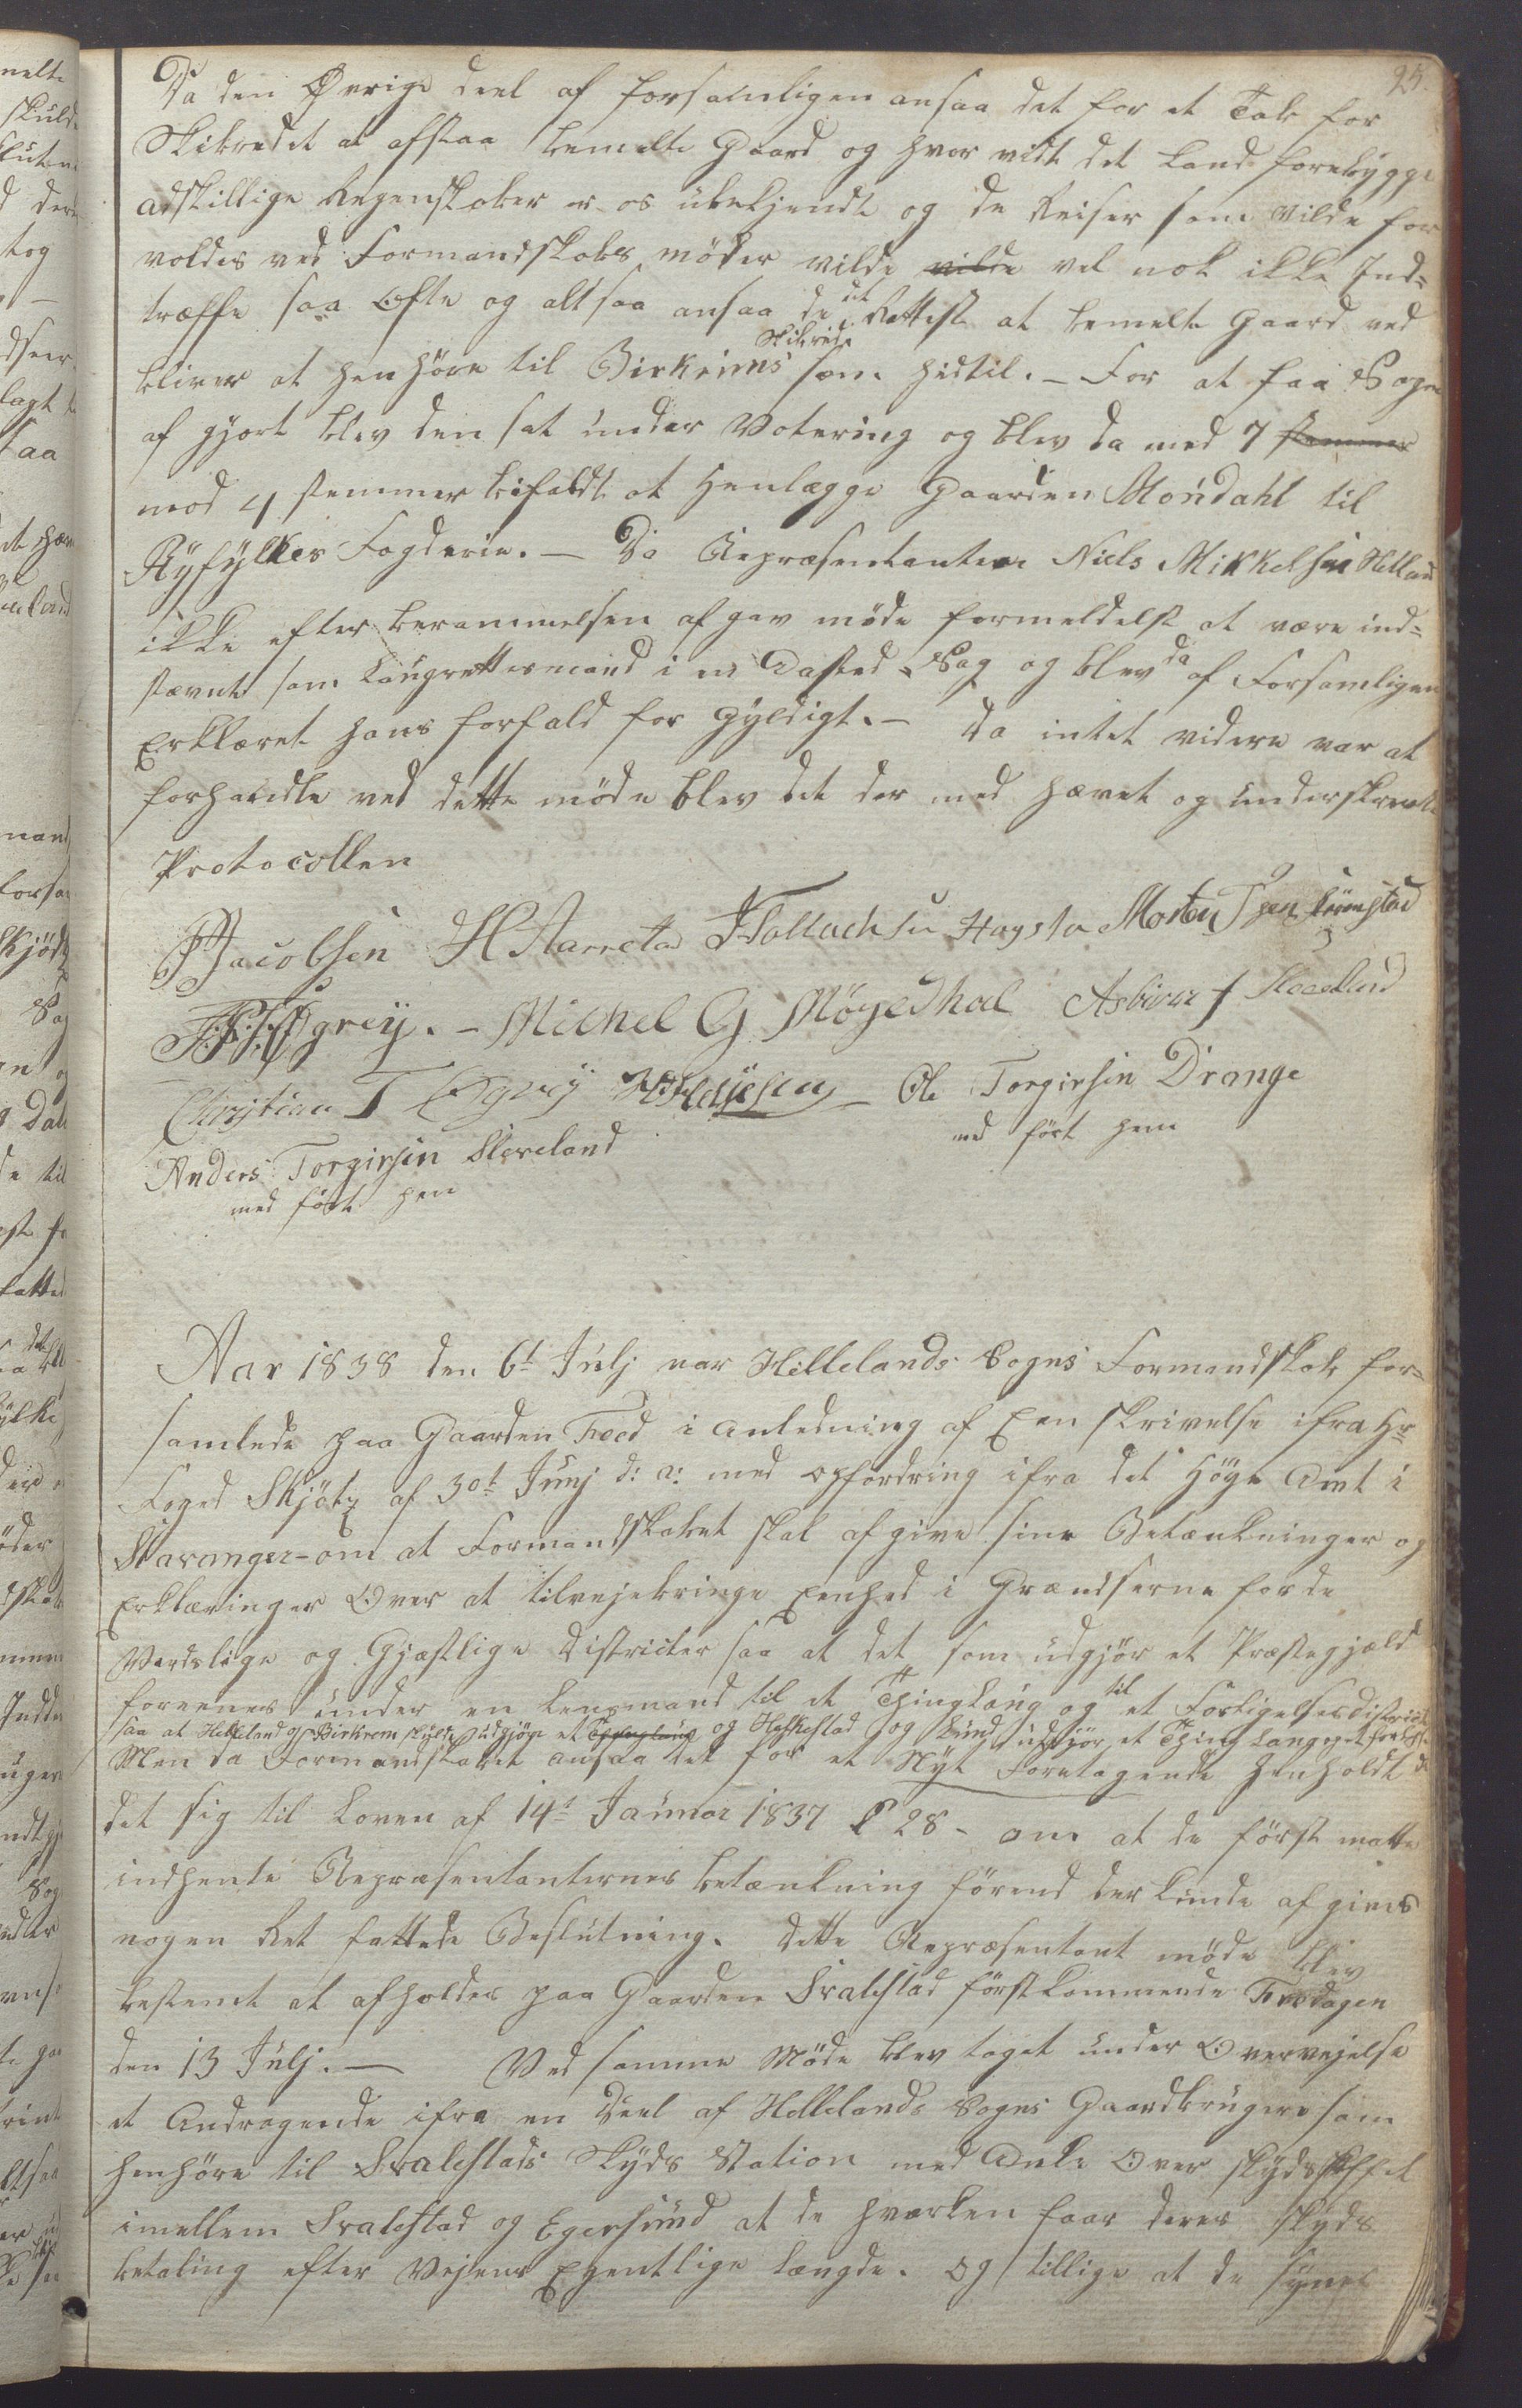 25.
Da den Øvrige deel af forsamligen ansaa det for et Tab for
Skibredet at afstaa bemelte Gaard og hvor vidt det kand forebygge
adskillige Regenskaber er os ubekjendt og de Reiser som vilde for
voldes ved Formandskabs møder vilde vilde vel nok ikke Ind=
træffe saa Ofte og altsaa ansaa de det Rettest at bemelte Gaard ved
bliver at henhøre til Birkrims Skibrede som hidtil. – For at faa Sagen
af gjort blev den sat under Votering og blev da med 7 stemmer
mod 4 stemmer bifaldt at Henlægge Gaarden Mondahl til
Ryfylkes Fogderie. – Da Repræsentanten Niels Mikkelsen Helland
ikke efter berammelsen af gav møde formeldelst at være ind=
stævnt som Laugrettesmand i en Aasted Sag og blev da af Forsamligen
Erklæret hans forfald for Gyldigt. – Da intet videre var at
forhandle ved dette møde blev det der med hævet og underskrevet
Protocollen
PJacobsen H Aarrestad Tollachsen Hagsta Morten
grey. – Michel G Møgedhal Asbiørn
Christian T Egrey Ole Torgirsen Drange
med ført hen
Anders Torgirsen Sleveland
med ført hen
Aar 1838 den 6t Julj var Hellelands Sogns Formandskab for=
samlede paa Gaarden Foed i Anledning af Een skrivelse ifra Hr
Foged Skjøtz af 30t Junj d: a: med opfordring ifra det Høye Amt i
Stavanger – om at Formandskabet skal afgive sine Betænkninger og
Erklæringer Over at tilvejebringe Eenhed i Grændserne for de
Verdslige og Gjæstlige Districter saa at det som udgjør et Præstegjæld
foreenes under en Lensmand til et Thinglaug og til et Forligelsesdistrict
saa at Helleland og Birkrem skulde udgjøre et Thinglaug og Heskestad og Lund udgjør et Thinglaug
Men da Formandskabet ansaa det for et Nyt Foretagende henholdt de
det sig til Loven af 14d Januar 1837 § 28 – om at de først maatte
indhente Repræsentanternes betænkning førend der kunde afgives
nogen Ret fattede Beslutning. Dette Repræsentant møde blev
bestemt at afholdes paa Gaarden Svalestad førstkommende Fredagen
den 13 Julj. – Ved samme Møde blev taget under Overvejelse
et Andragende ifra en Deel af Hellelands Sogns Gaardbrugere som
henhøre til Svalestads Skyds Station med Anke Over skydsskiftet
imellem Svalestad og Egersund at de hværken faar deres skyds
betaling efter Vejens Egentlige Længde. og tillige at de synes